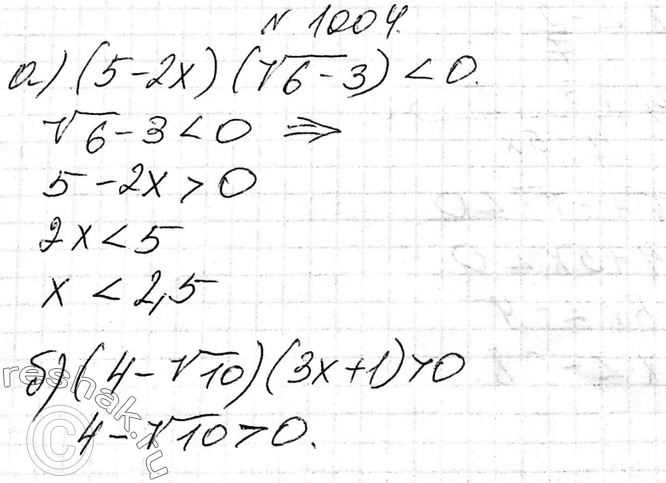 № 1004.
а) (5-2x)(√6-3)<0.
√6-3<0 ⇒
5-2x>0
2x<5
x<2,5
б) (4-√10)(3x+1)>0
4-√10>0.
reshak.ru